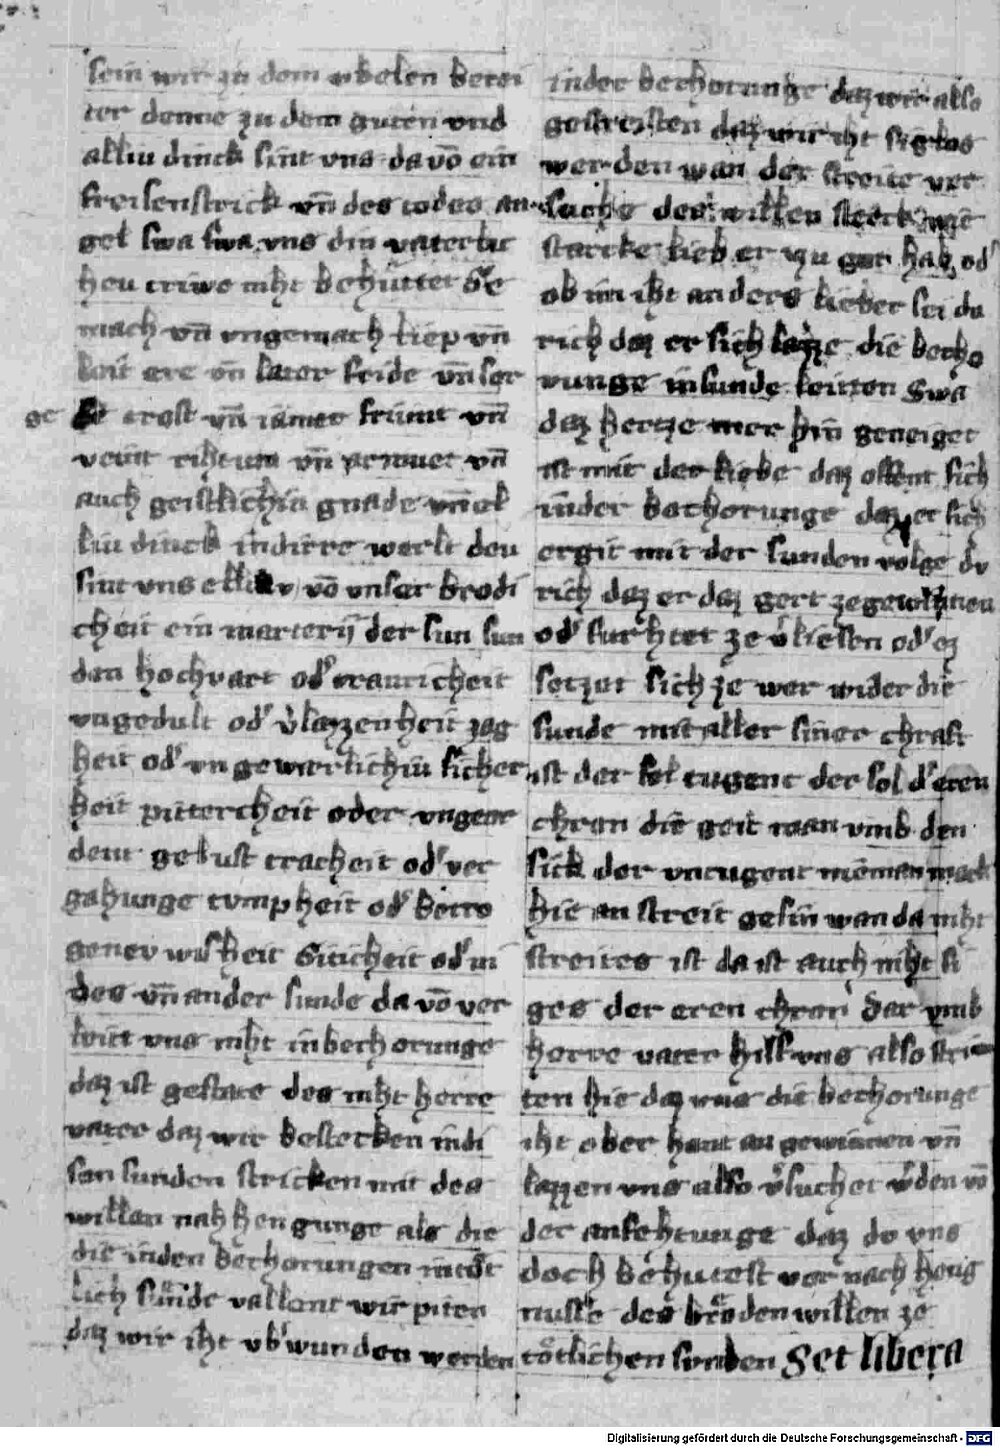 sein wir zu dem vbelen berei
ter denne zu dem guten vnd
alliu dinck sint vns da vō ein
freisenstrick vn̄ des todes an
gel swa swa vns din vaterlic
heu triwe niht behuttet Ge
mach vn̄ vngemach liep vn̄
leit ere vn̄ laster freide vn̄ sor
ge trost vn̄ iamer friunt vn̄
veint rihtum vn̄ armuet vn̄
auch geistlichiu gnade vn̄ el
liu dinck in dirre werlt deu
sint vns vō vnser brodi
cheit ein der sun sun
den hochvart od' trauricheit
vngedult od' v'lazzenheit zag
heit od' vngewerlichiu sicher
heit pittercheit oder vngeor
dent gelust tracheit od' ver
gahunge tvmpheit od' betro
geneu wisheit Giticheit od' ni
des vn̄ ander sunde da vō ver
leitt vns niht in bechorunge
daz ist gestate des niht herre
vater daz wir bestecken in di
sen sunden stricken mit des
willen nahhengunge als die
die in den bechorungen totͤ
lich sunde vallent wir piten
daz wir iht vb'wunden werden
in der bechorunge daz wir also
gestreitten daz wir iht siglos
werden wan der streite ver
sucht des willen sterck wie
starcke lieb er zu got hab od'
ob im iht anders lieber sei du
rich daz er sich lazze die becho
runge in sunde leitten Swa
daz hertze mer hin geneiget
ist mit der liebe daz offent sich
in der bechorunge daz er sich
ergit mit der sunden volge dv
rich daz er daz gert ze gewinnen
od' furhtet ze v'liesen od' ez
setzet sich ze wer wider die
sunde mit aller siner chraft
ist der sel tugent der sol d' eren
chron die geit man vmb den
sick der vntugent nieman mack
hie an streit gesin wan da niht
streites ist da ist auch niht si
ges der eren chron Dar vmb
herre vater hilf vns also strei
ten hie daz vns die bechorunge
iht ober hant an gewinnen vn̄
lazzen vns also v'suchet w'den vō
der anfehtunge daz do vns
doch behutest vor nach heng
nusse des brͦden willen ze
totͤlichen sunden Set libera